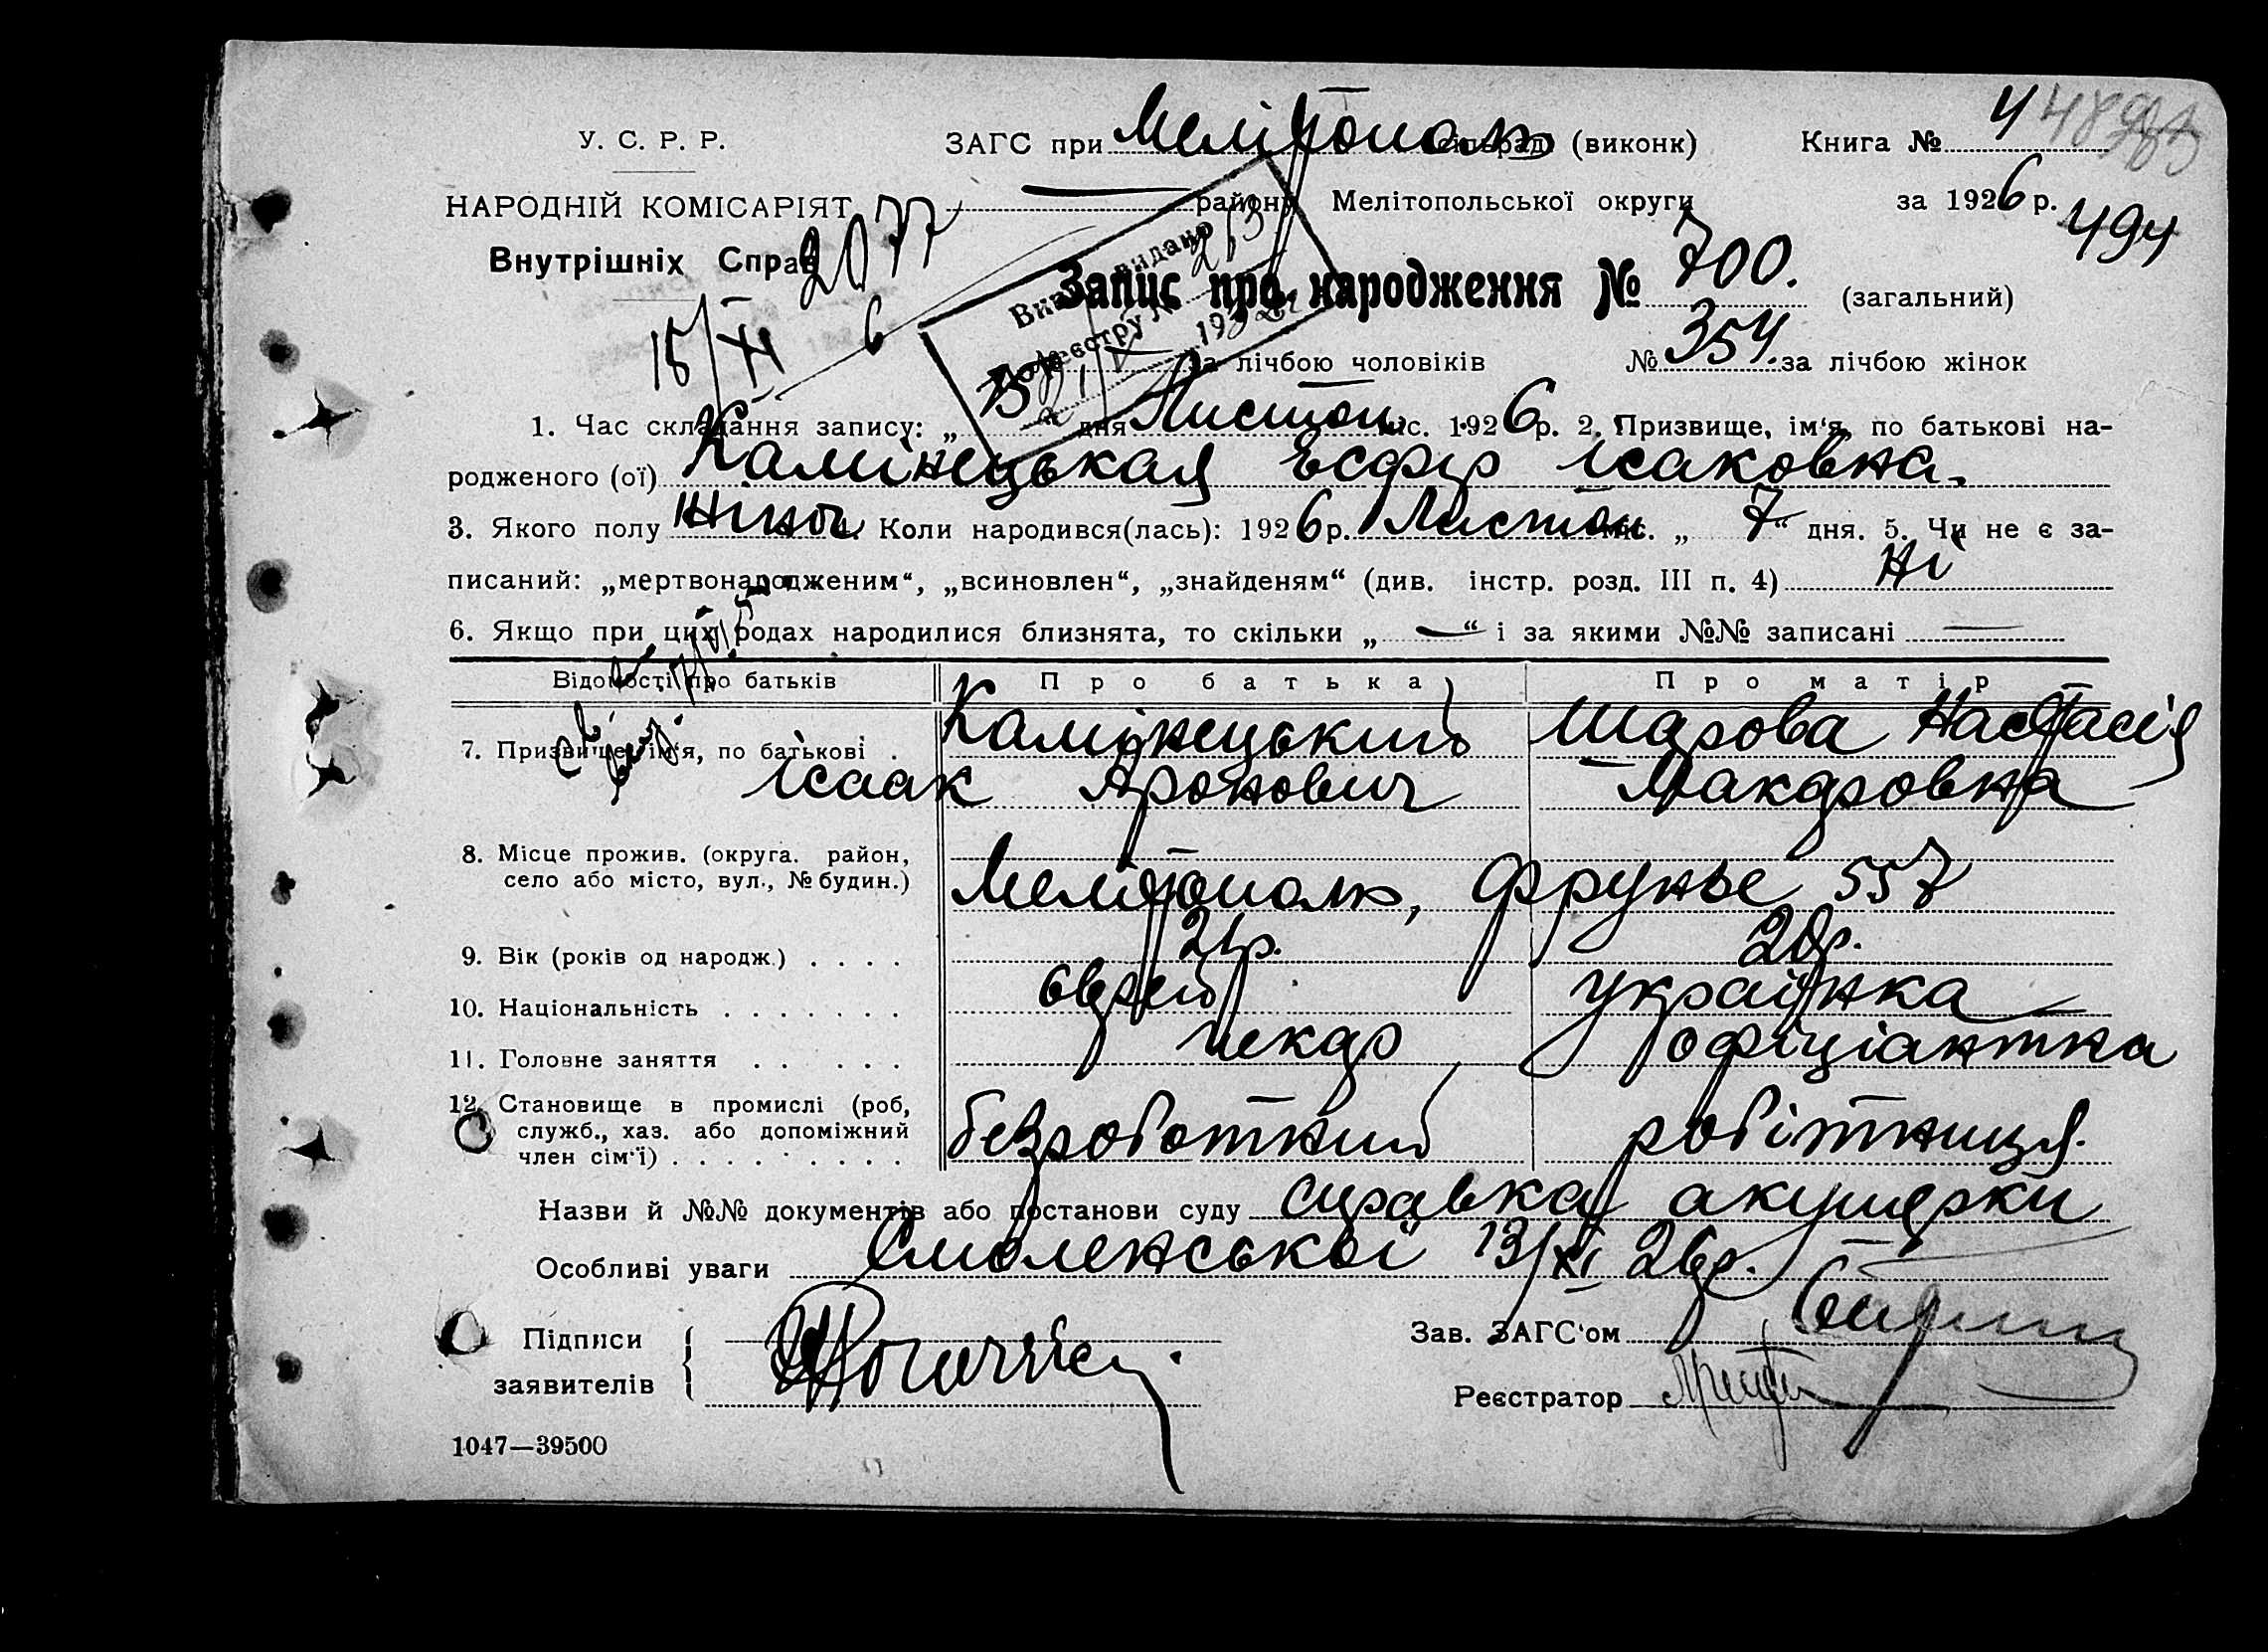 У. С. Р. Р.
ЗАГС при Мелітополь сільрад (виконк)
Книга № 4
НАРОДНІЙ КОМІСАРІЯТ
району Мелітопольської округи
за 1926 р.
494
Внутрішніх Справ
2077
Запис про народження № 700. (загальний)
15/XI 6
Випис видано
По реєстру № 213
193
№ — за лічбою чоловіків № 354. за лічбою жінок
1. Час складання запису: „15“ дня Листоп. міс. 1926 р. 2. Призвище, ім‘я, по батькові на-
родженого (ої) Камінецькая Есфір Ісаковна.
3. Якого полу жіноч 4. Коли народився(лась): 1926 р. Листоп міс. „7“ дня. 5. Чи не є за-
писаний: „мертвонародженим“, „всиновлен“, „знайденям“ (див. інстр. розд. III п. 4) Ні
6. Якщо при цих родах народилися близнята, то скільки „—“ і за якими №№ записані —
Відомості про батьків Про батька Про матір
7. Призвище, ім‘я, по батькові . Камінецький Шарова Настасія
Ісаак Аронович Макаровна
8. Місце прожив. (округа. район,
село або місто, вул., № будин.) Мелітополь, Фрунзе 557
9. Вік (років од народж.) . . . . 21р. 20р.
10. Національність . . . . . . . еврей українка
11. Головне заняття . . . . . пекар офіціантка
12. Становище в промислі (роб,
служб., хаз. або допоміжний
член сім‘ї) . . . . . . . . . безроботний робітниця.
Назви й №№ документів або постанови суду справка акушерки
Особливі уваги Смоленської 13/XI 26р.
Підписи
заявителів
Зав. ЗАГС‘ом
Реєстратор
1047—39500